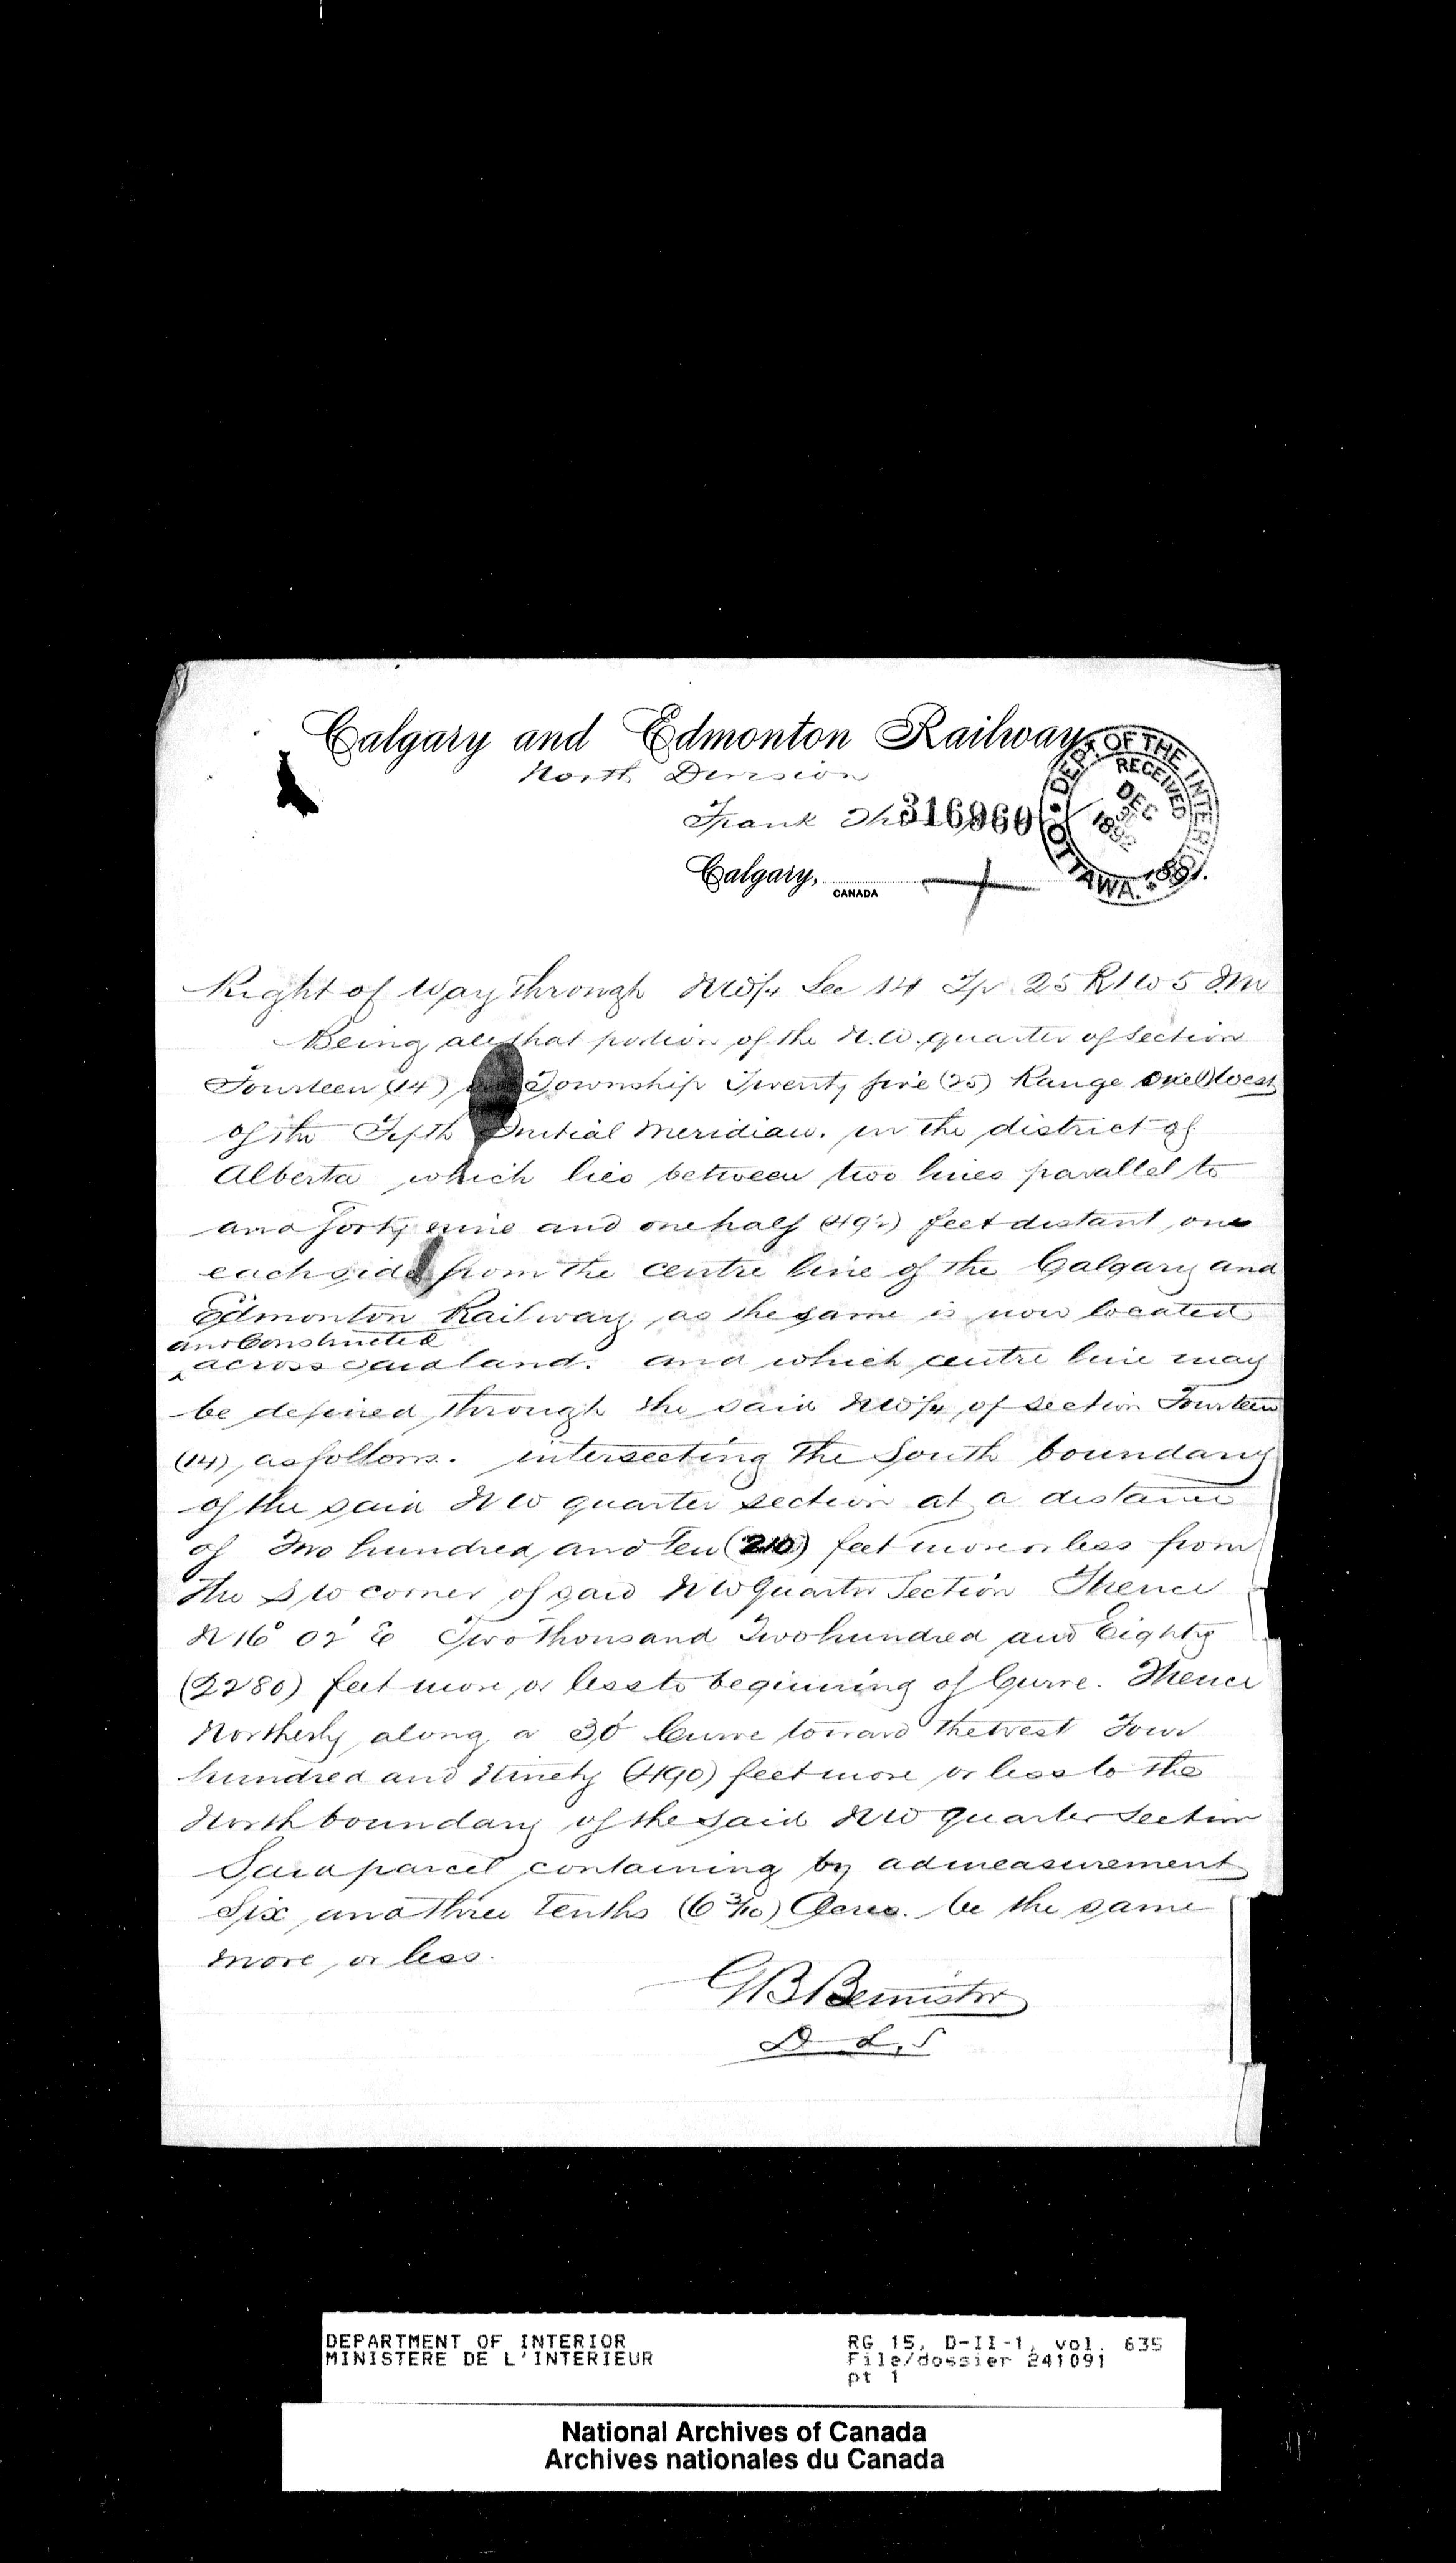 Calgary and Edmonton Railway
North Division
Frank
316960
DEPT. OF THE INTERIOR
RECEIVED
DEC
1892
OTTAWA.
Calgary,
CANADA
1891.
Right of Way Through NW¼ Sec 14 Tp 25 R1 W 5 M
Being all that portion of the N.W. quarter of section
Fourteen (14) Township Twenty five (25) Range One(1) West
of the Fifth Initial Meridian. in the district of
Alberta which lies between two lines parallel to
and forty nine and one half (49½) feet distant on
each side from the centre line of the Calgary and
Edmonton Railway as the same is now located
and Constructed
across said land. and which centre line may
be defined through the said NW¼ of section Fourteen
(14), as follows. intersecting the South boundary
of the said NW quarter section at a distance
of Two hundred and Ten (210) feet more or less from
the SW corner of said NW Quarter Section Thence
N 16° 02' E Two Thousand Two hundred and Eighty
(2280) feet more or less to beginning of Curve. Thence
Northerly along a 30' Curve toward the west Four
hundred and Ninety (490) feet more or less to the
North boundary of the said NW quarter Section
Said parcel containing by admeasurement
Six and three Tenths (6 3/10) Acres. be the same
more or less.
GB Bemister
D L, S
DEPARTMENT OF INTERIOR
MINISTERE DE L'INTERIEUR
RG 15, D-II-1, vol. 635
File/dossier 241091
pt 1
National Archives of Canada
Archives nationales du Canada